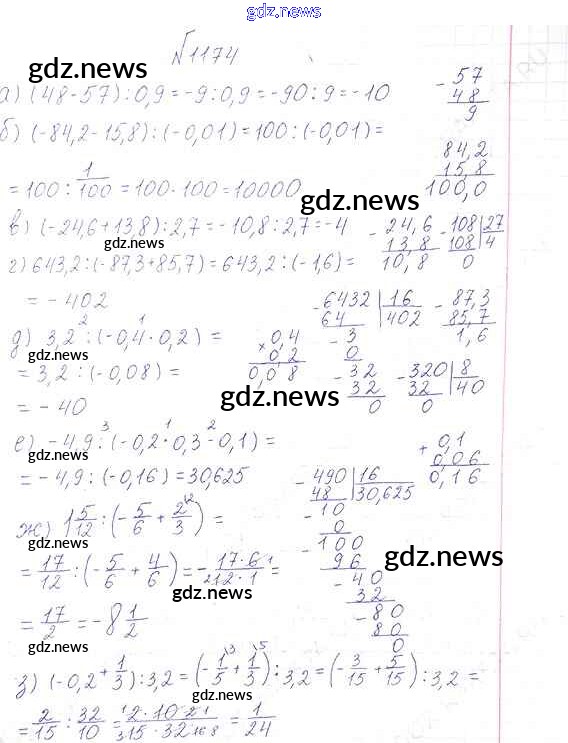 gdz.news
№1174
gdz.news
gdz.news
а) (48-57):0,9=-9:0,9=-90:9=-10
- 57
48
9
б) (-84,2-15,8):(-0,01)=100:(-0,01)=
= 100 : 1/100 = 100·100=10000
84,2
15,8
100,0
gdz.news
в) (-24,6+13,8):2,7=-10,8:2,7=-4
- 24,6
13,8
10,8
- 108 | 27
108 | 4
0
gdz.news
г) 643,2:(-87,3+85,7)=643,2:(-1,6)=
= -402
gdz.news
- 6432 | 16
64 | 402
- 3
0
- 32
32
0
- 87,3
85,7
1,6
д) 3,2 : (-0,4·0,2) =
2 1
= 3,2 : (-0,08) =
= -40
gdz.news
× 0,4
0,2
0,08
- 320 | 8
32 | 40
0
gdz.news
е) -4,9 : (-0,2·0,3-0,1) =
3 1 2
gdz.news
= -4,9 : (-0,16) = 30,625
+ 0,1
0,06
0,16
- 490 | 16
48 | 30,625
- 10
0
- 100
96
- 40
32
- 80
80
0
gdz.news
ж) 1 5/12 : (- 5/6 + 2/3) =
gdz.news
= 17/12 : (- 5/6 + 4/6) = - 17·6/12·1 =
gdz.news
= 17/2 = -8 1/2
gdz.news
з) (-0,2 + 1/3) : 3,2 = (- 1/5 + 1/3) : 3,2 = (- 3/15 + 5/15) : 3,2 =
gdz.news
= 2/15 : 32/10 = 2·10/15·32 = 1/24
gdz.news